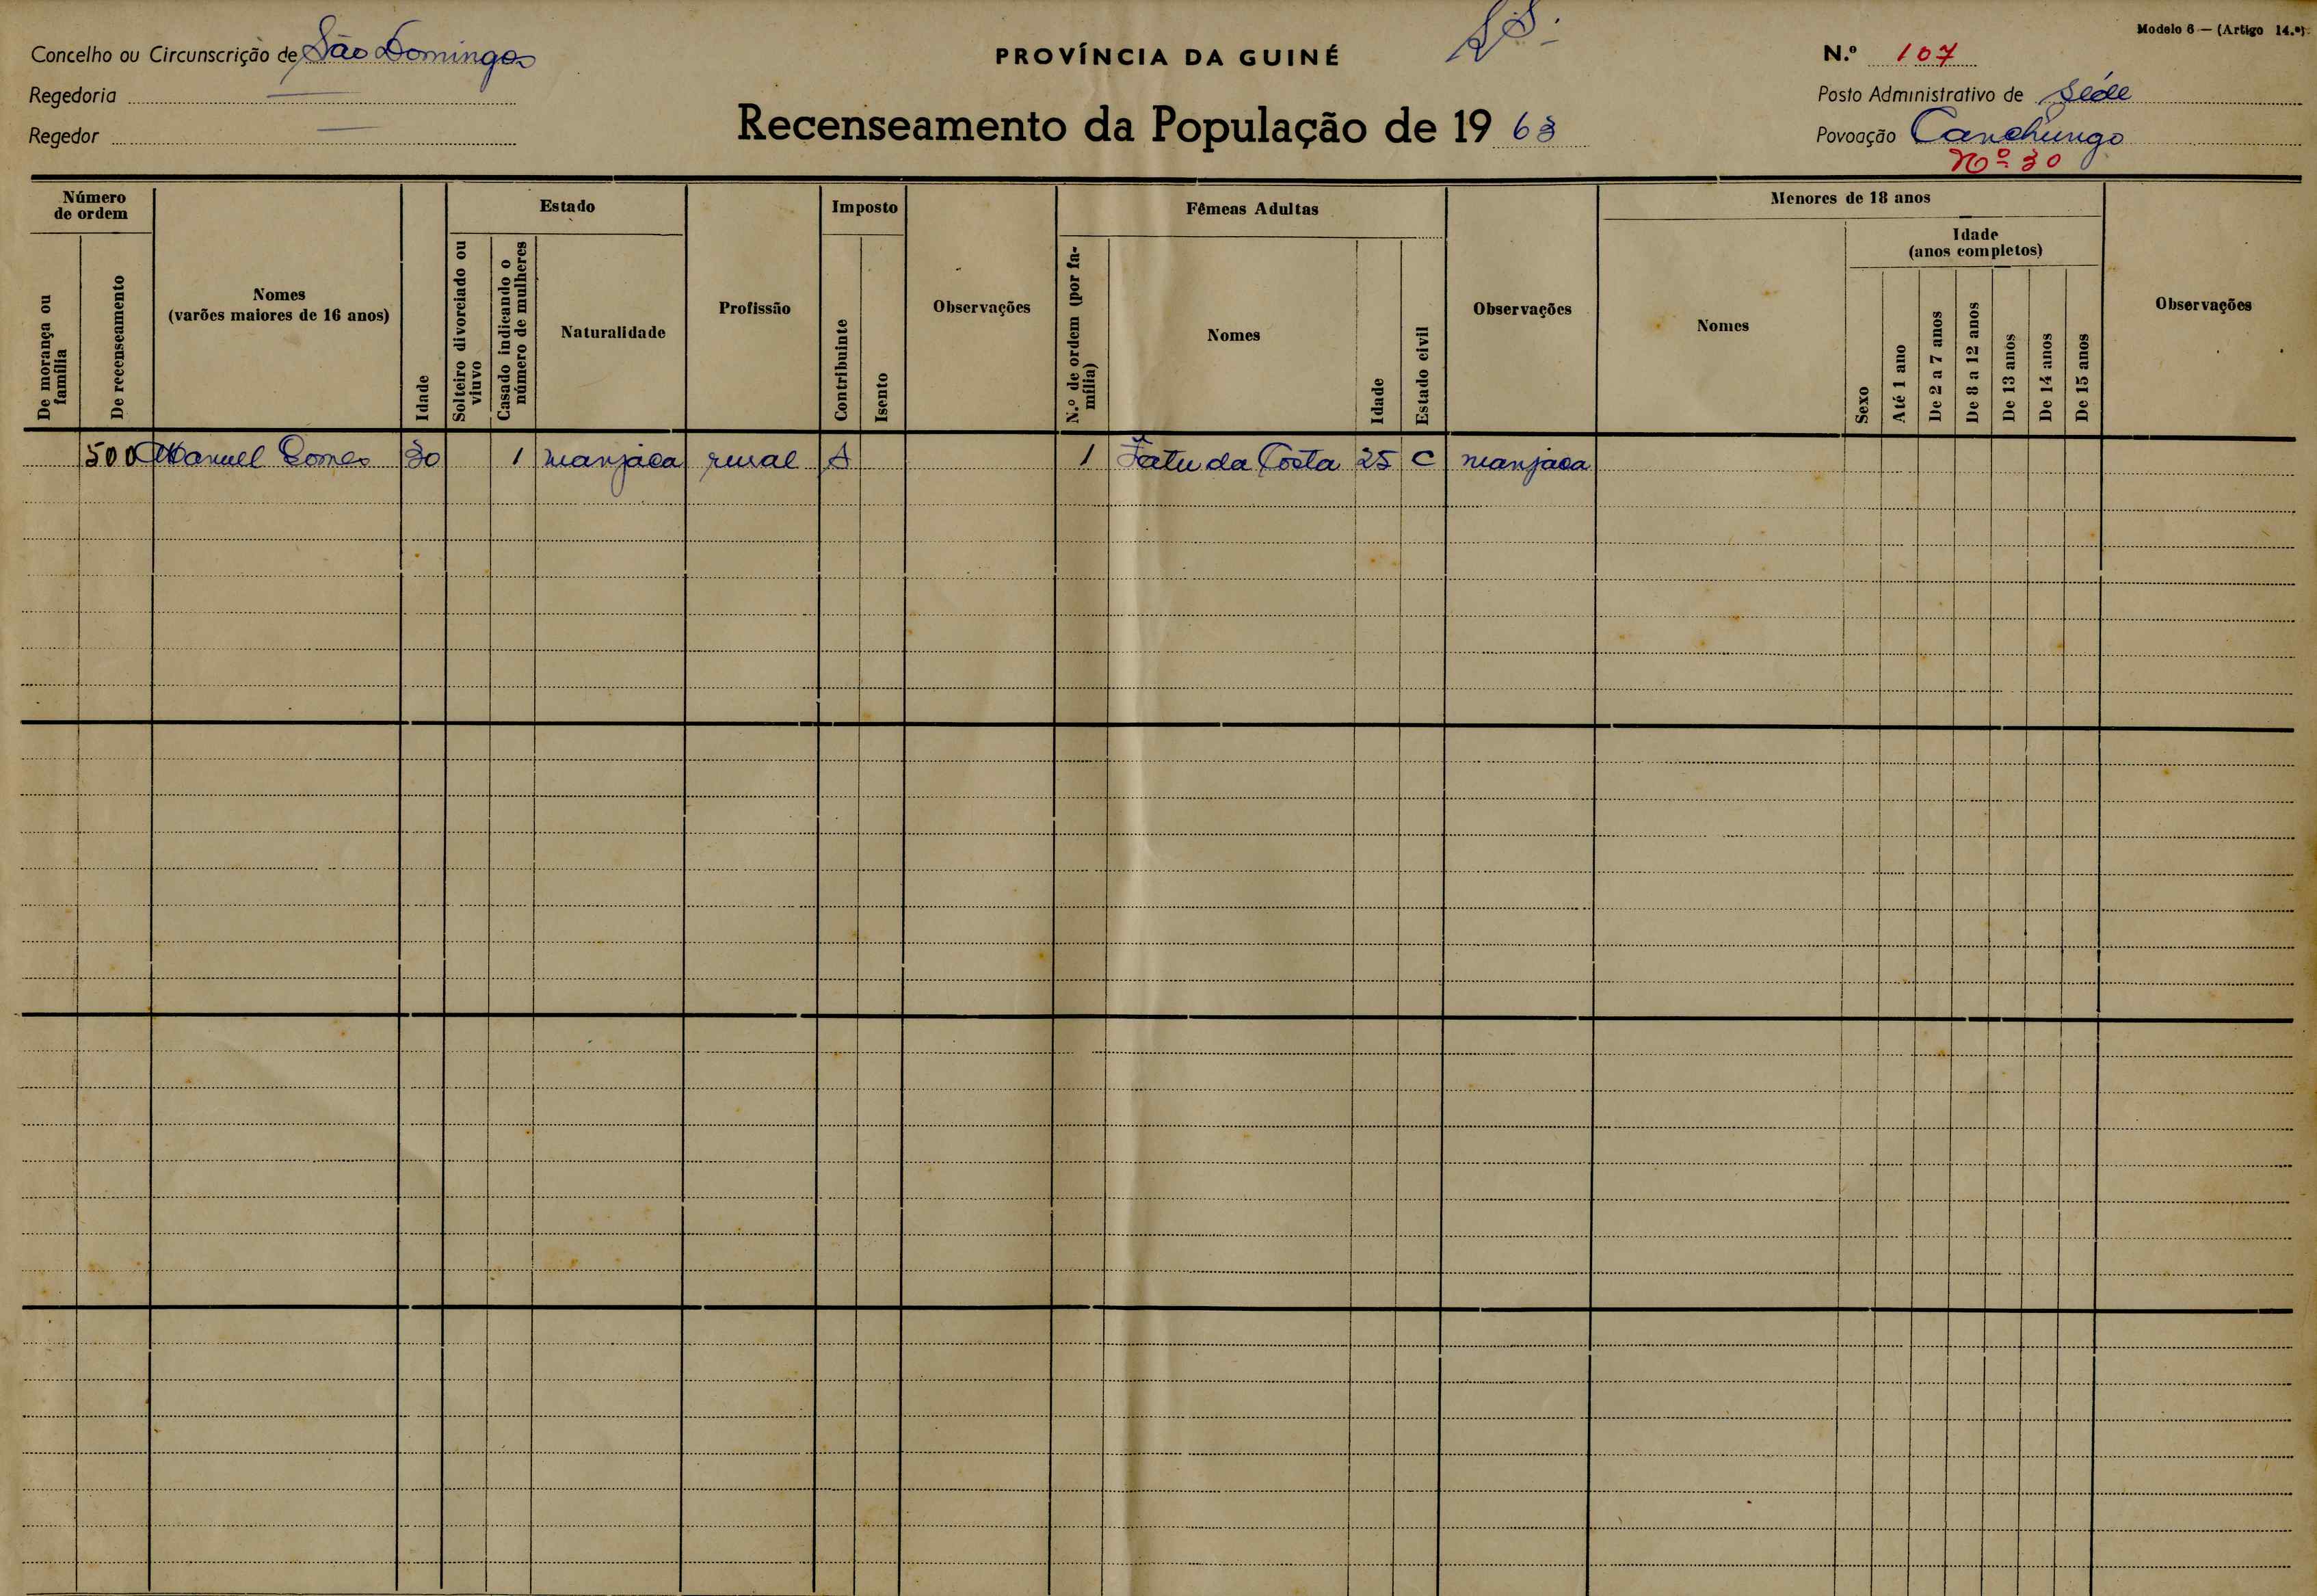 Modelo 6 — (Artigo 14.º)
Concelho ou Circunscrição de São Domingos
PROVÍNCIA DA GUINÉ
N.º 107
Regedoria —
Posto Administrativo de Séde
Regedor —
Recenseamento da População de 19 63
Povoação Canchungo
Nº 30
Número de ordem
De morança ou família
De recenseamento
Nomes
(varões maiores de 16 anos)
Idade
Estado
Solteiro divorciado ou viuvo
Casado indicando o número de mulheres
Naturalidade
Profissão
Imposto
Contribuinte
Isento
Observações
Fêmeas Adultas
N.º de ordem (por família)
Nomes
Idade
Estado civil
Observações
Menores de 18 anos
Nomes
Sexo
Idade
(anos completos)
Até 1 ano
De 2 a 7 anos
De 8 a 12 anos
De 13 anos
De 14 anos
De 15 anos
Observações
500 Manuel Gomes 30 1 manjaca rural 1 Fatu da Costa 25 C manjaca